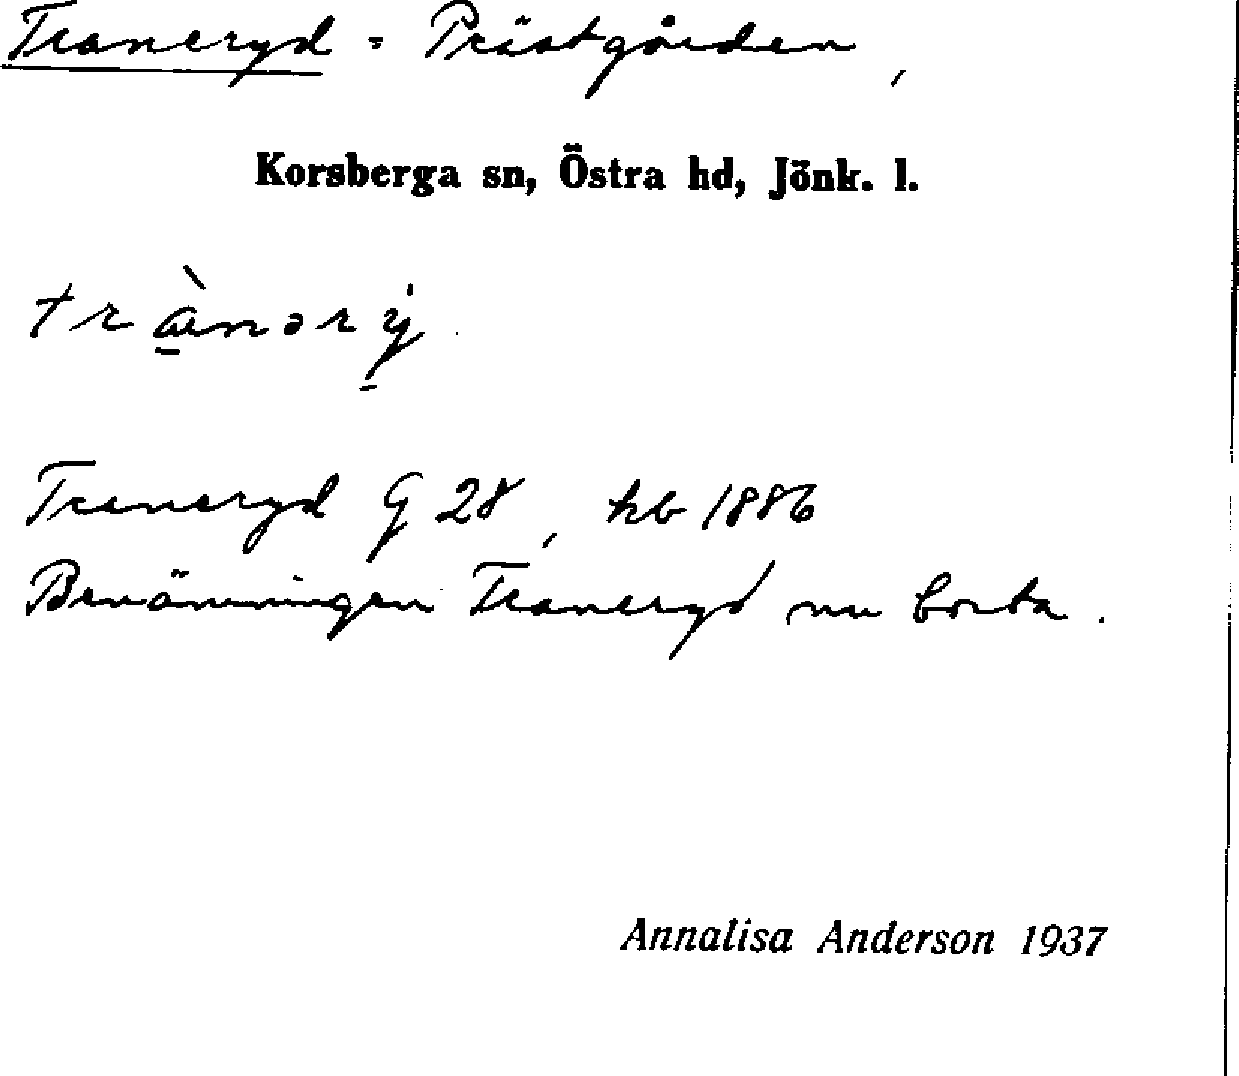 Traneryd = Prästgården,
Korsberga sn, Östra hd, Jönk. l.
trànərý
Traneryd G 28, hb 1886
Benämningen Traneryd nu borta.
Annalisa Anderson 1937